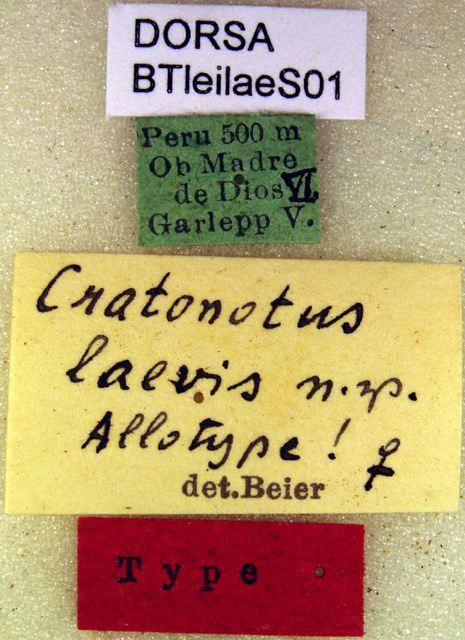 DORSA
BTleilaeS01
Peru 500 m
Ob Madre
de Dios VI.
Garlepp V.
Cratonotus
laevis n.sp.
Allotype! ♀
det.Beier
Type